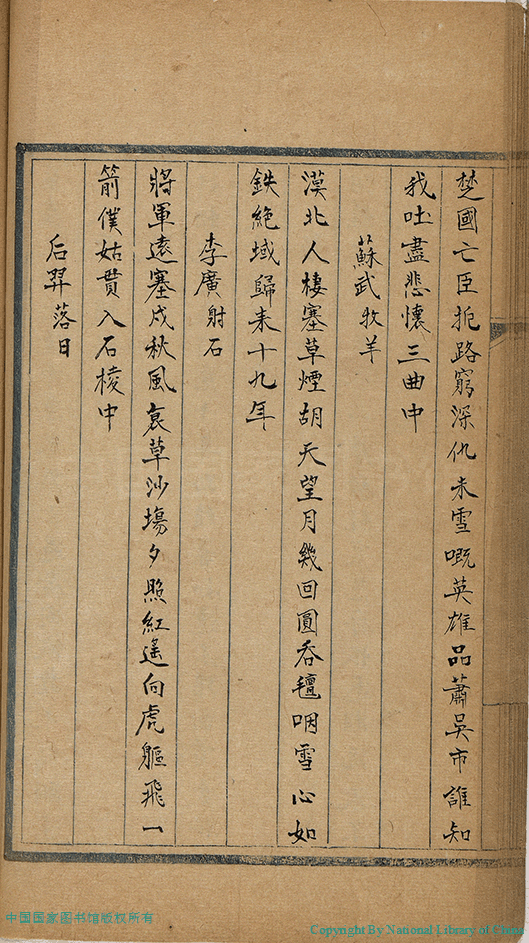 楚國亡臣扼路窮深仇未雪嘅英雄品蕭吳市誰知
我吐盡悲懷三曲中
蘇武牧羊
漠北人棲塞草煙胡天望月幾回圓吞氊咽雪心如
鉄絶域歸来十九年
李廣射石
將軍遠塞戍秋風衰草沙塲夕照紅遙向虎軀飛一
箭僕姑貫入石棱中
后羿落日
中国国家图书馆版权所有
Copyright By National Library of China